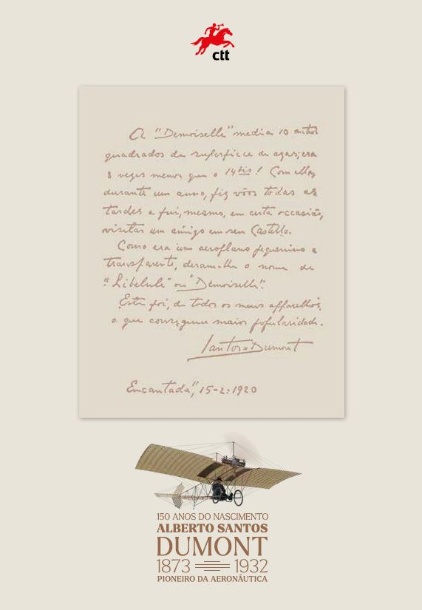 ctt
A "Demoiselle" media 10 metros
quadrados de superficie de azas; era
8 vezes menor que o 14 bis! Com ella,
durante um anno, fiz vôos todas as
tardes e fui, mesmo, em certa occasião,
visitar um amigo em seu Castello.
Como era um aeroplano pequenino e
transparente, deram-lhe o nome de
"Libellule" ou "Demoiselle".
Este foi, de todos os meus apparelhos,
o que conseguiu maior popularidade.
Santos=Dumont
"Encantada", 15-2-1920
150 ANOS DO NASCIMENTO
ALBERTO SANTOS
DUMONT
1873 1932
PIONEIRO DA AERONÁUTICA